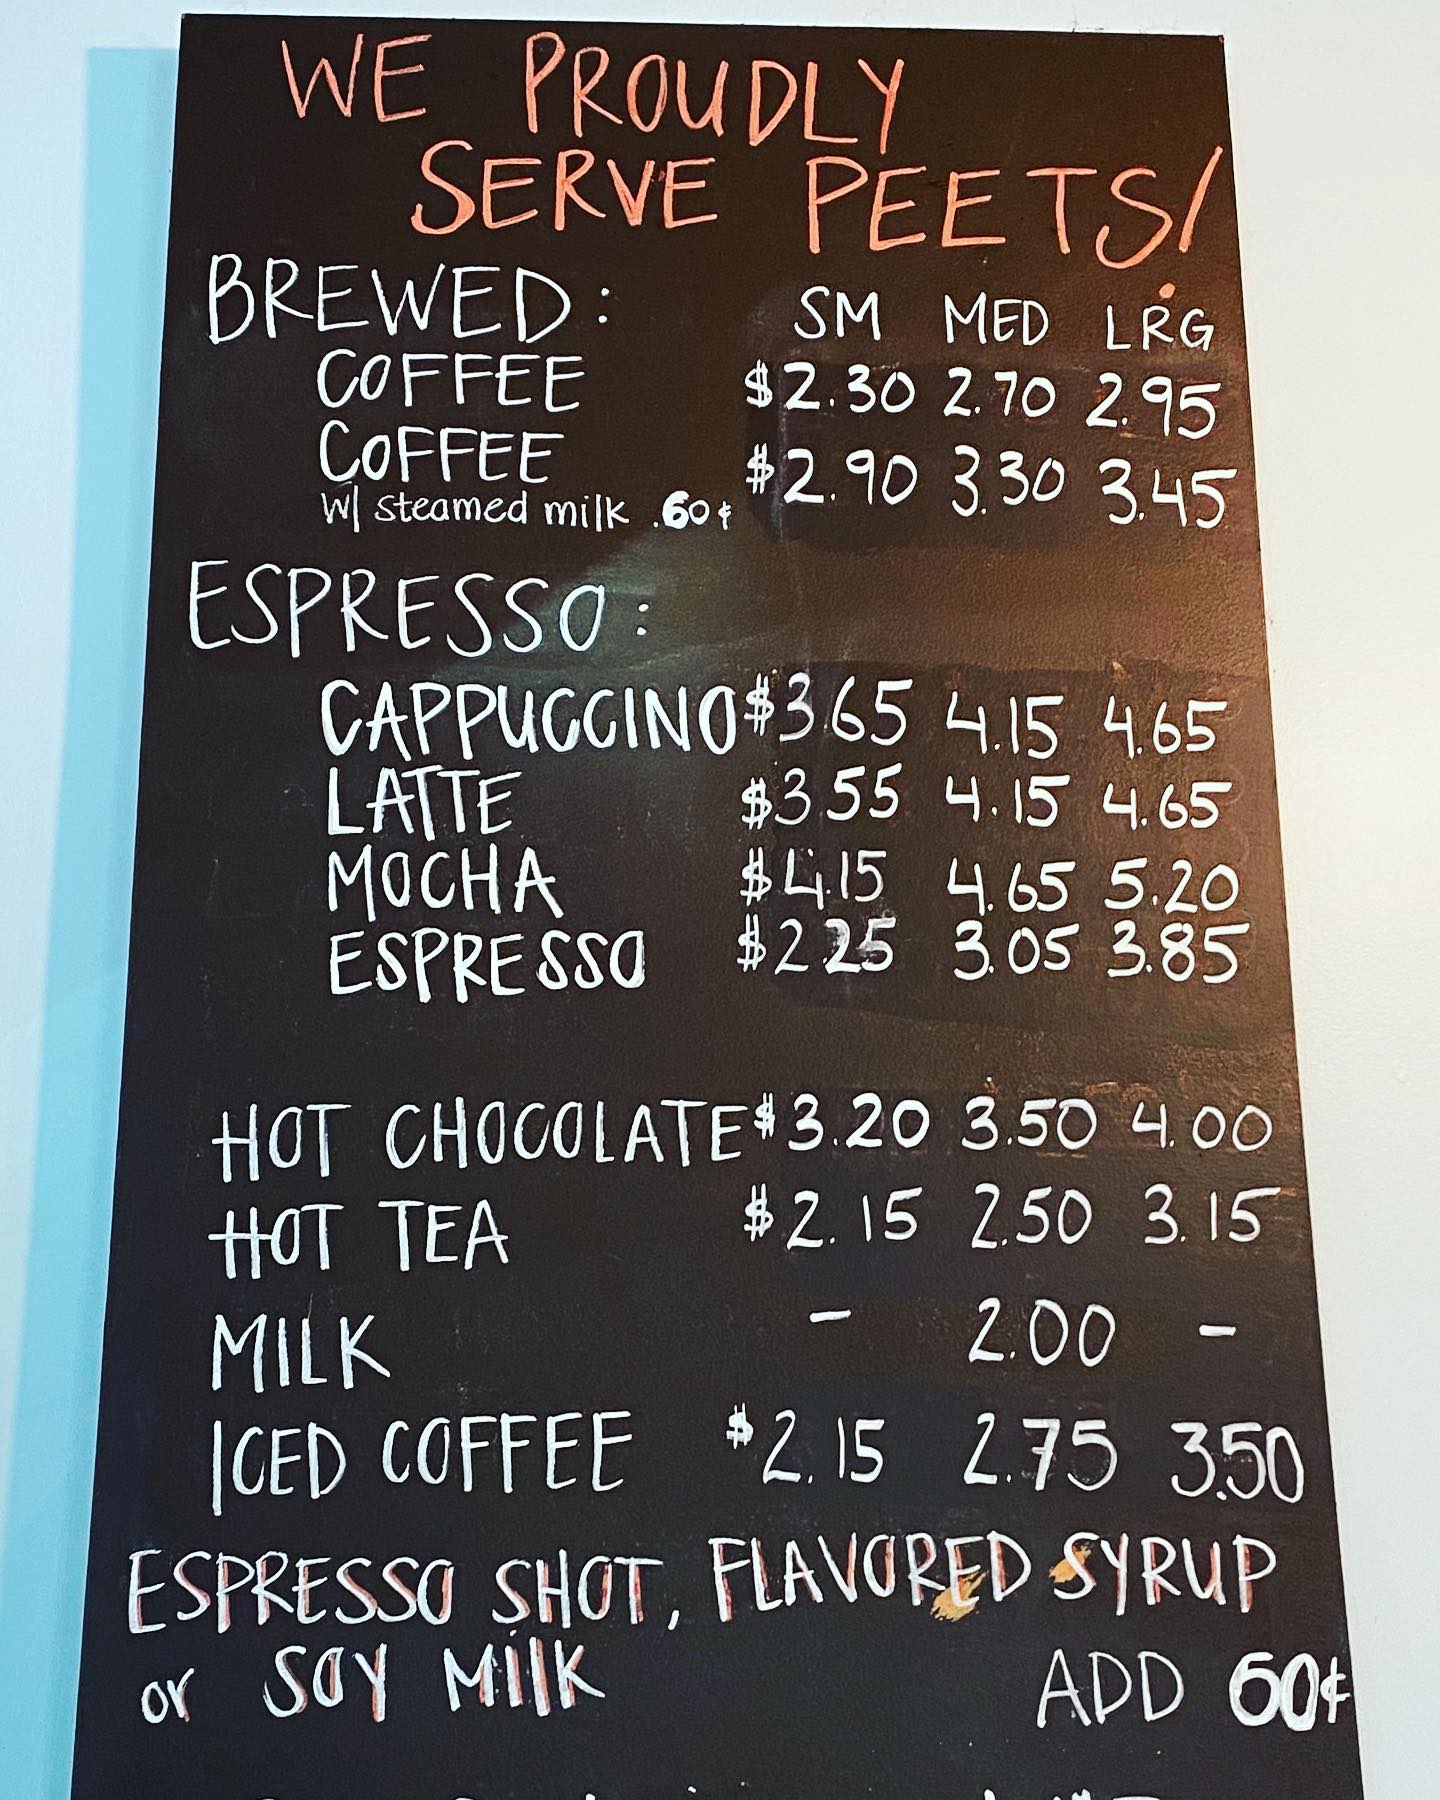 WE PROUDLY
SERVE PEETS!
BREWED: SM MED LRG
COFFEE $2.30 2.70 2.95
COFFEE $2.90 3.30 3.45
W/ steamed milk .60¢
ESPRESSO:
CAPPUCCINO $3.65 4.15 4.65
LATTE $3.55 4.15 4.65
MOCHA $4.15 4.65 5.20
ESPRESSO $2.25 3.05 3.85
HOT CHOCOLATE $3.20 3.50 4.00
HOT TEA $2.15 2.50 3.15
MILK - 2.00 -
ICED COFFEE $2.15 2.75 3.50
ESPRESSO SHOT, FLAVORED SYRUP
or SOY MilK ADD 60¢